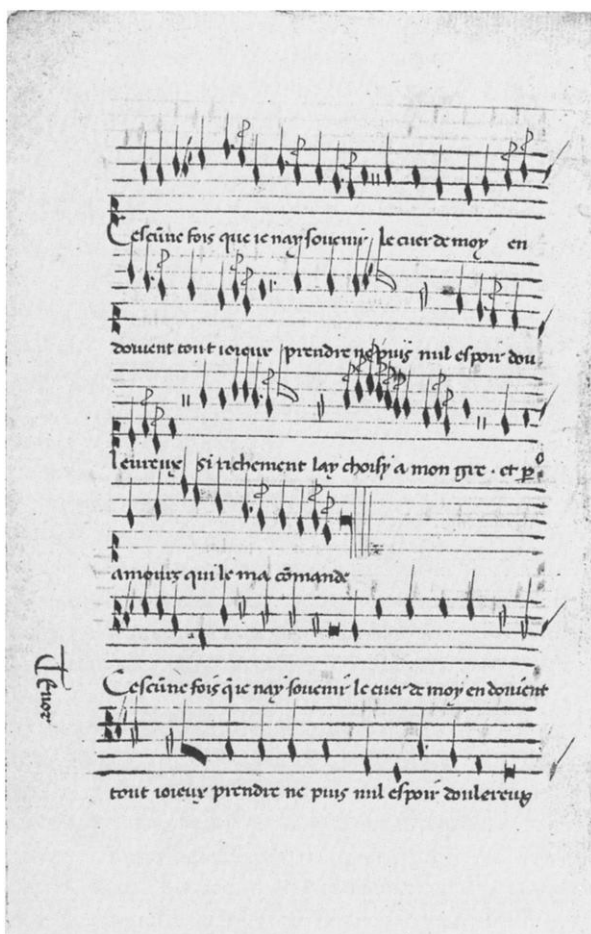 Cescune fois que ie nay souenir le cuer de moy en
doivent tout ioieux prendre ne puis nul espoir dou
leureux si richement lay choisy a mon gre . et p
amours qui le ma comande
Tenor
Cescune fois que nay souenir le cuer de moy en doivent
tout ioieux prendre ne puis nul espoir doulereux